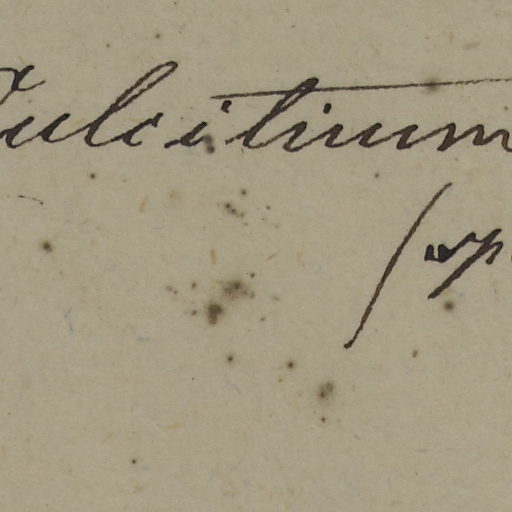 Culcitium
(sp.